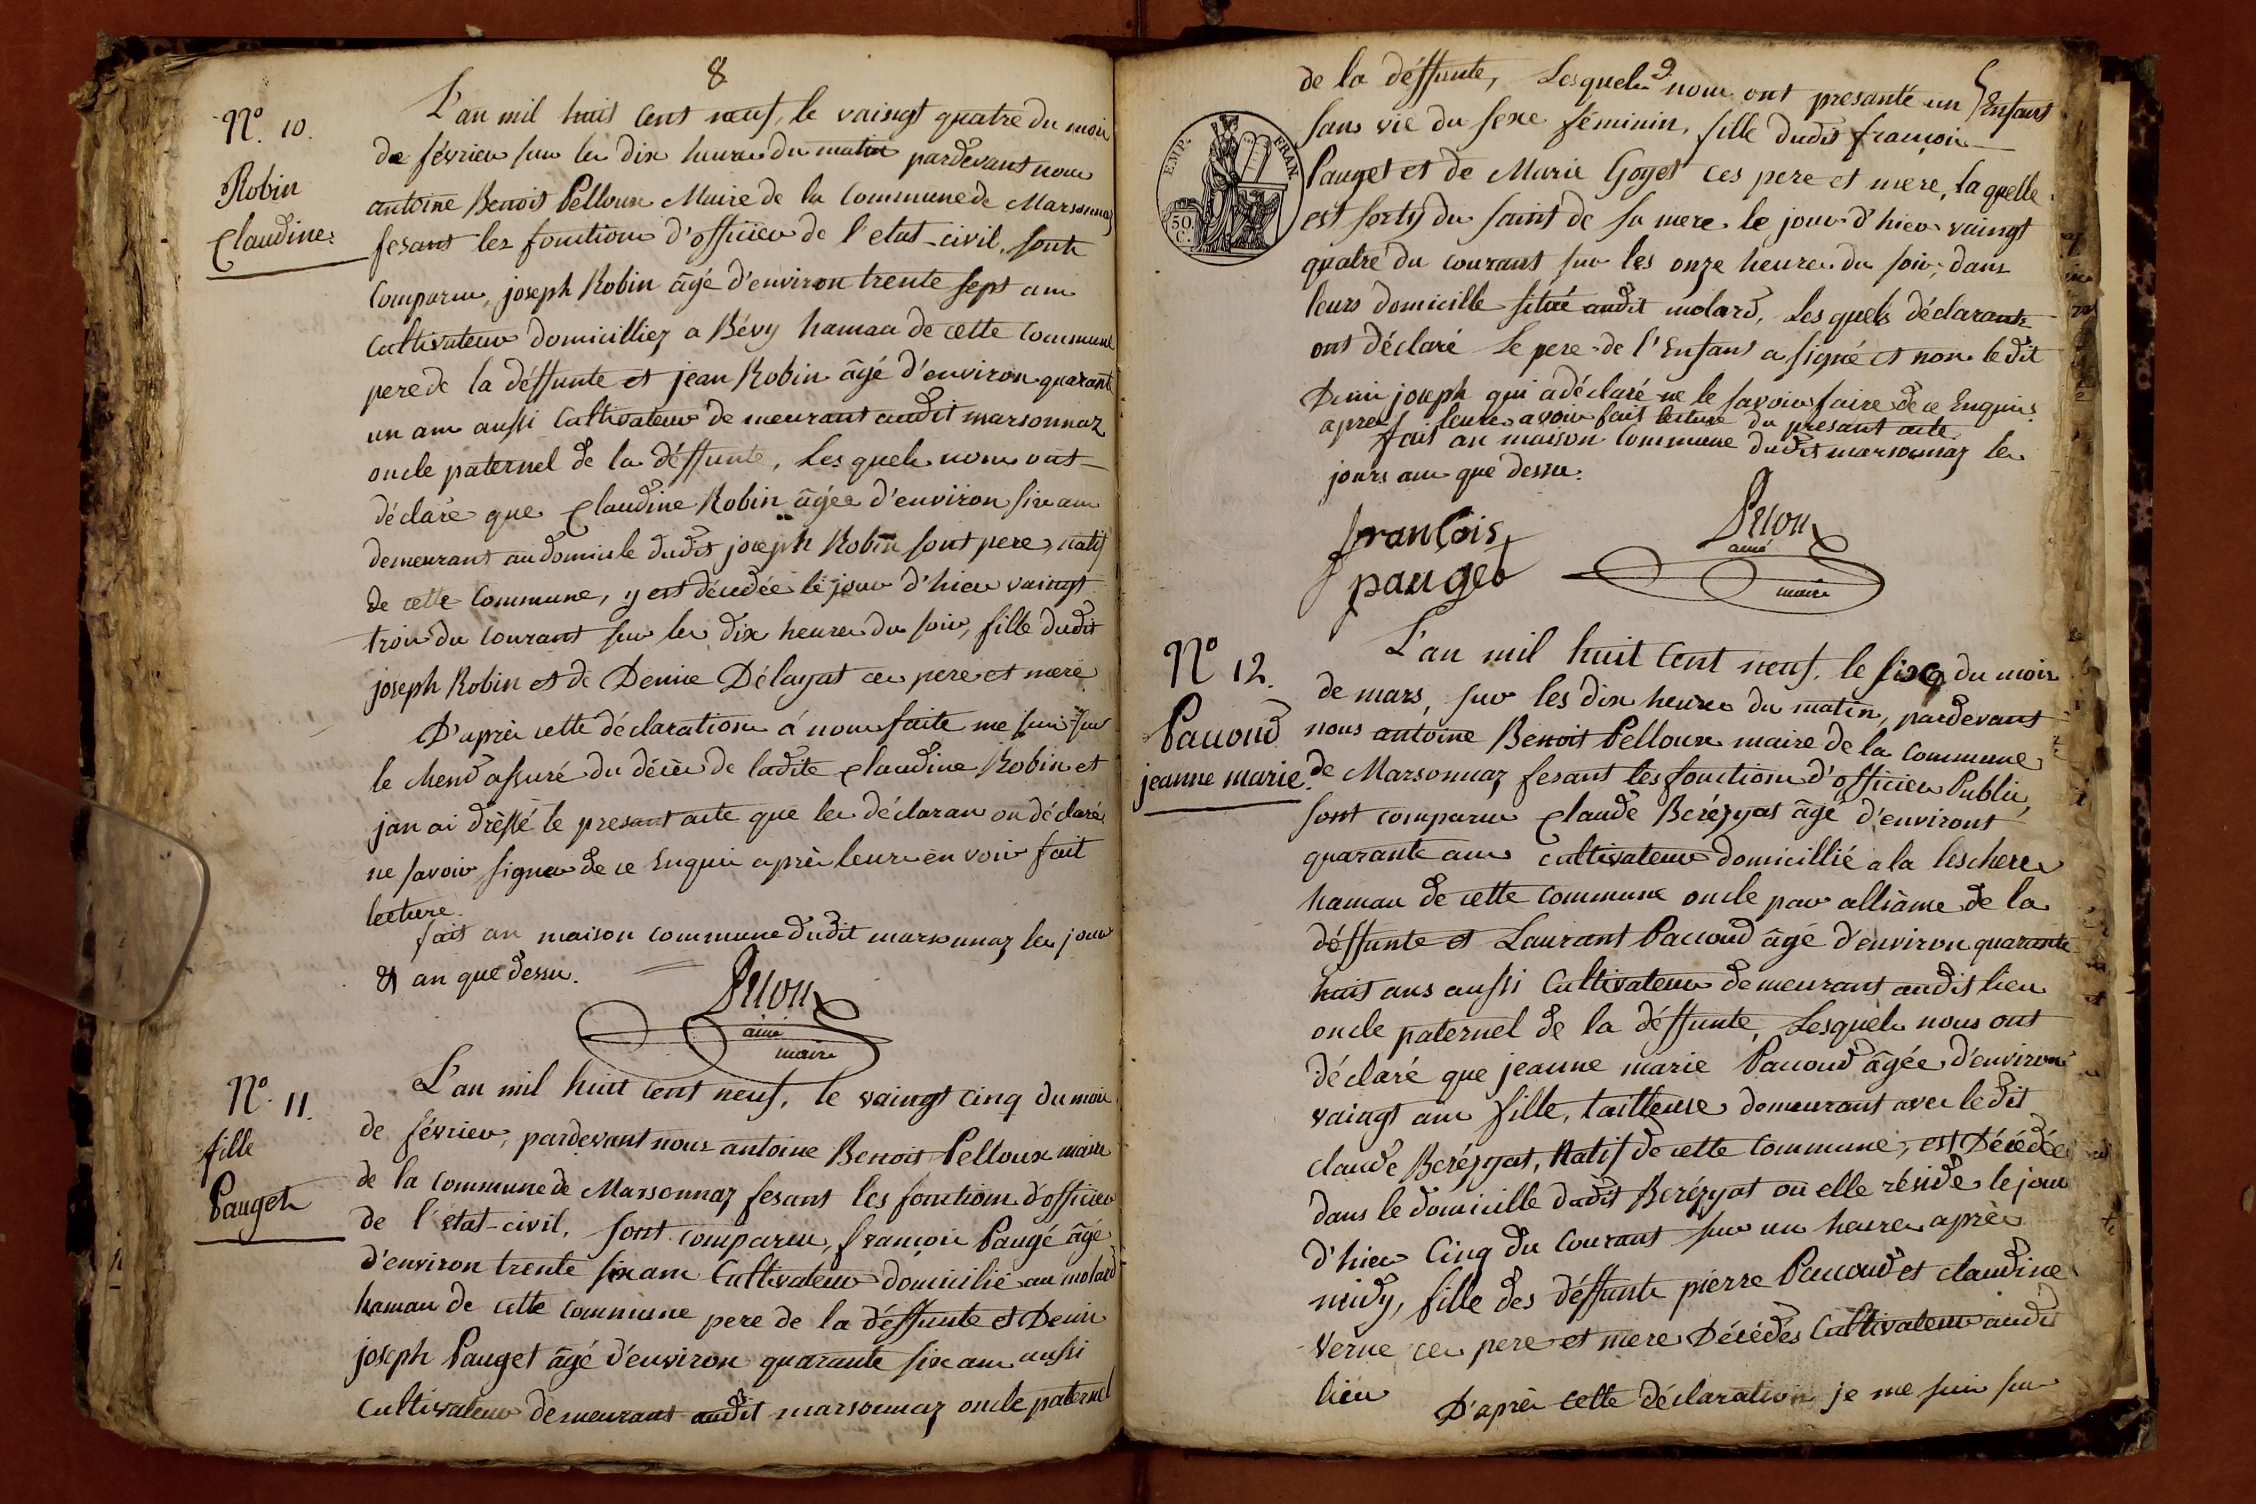 8
N.º 10.
Robin
Claudine.
L'an mil huit cent neuf, le vaingt quatre du mois
de février sur les dix heures du matin pardevant nous
antoine Benoit Pelloux Maire de la Commune de Marsonnaz
fesant les fonctions d'officier de l'etat-civil, sonts
Comparus, joseph Robin âgé d'environ trente sept ans
Cultivateur domicilliez a Bévy hamau de cette Commune
pere de la déffunte et jean Robin âgé d'environ quarante
un ans aussi Cultivateur de meurant audit marsonnaz
oncle paternel de la déffunte, Les quels nous ont
déclaré que Claudine Robin âgée d'environ six ans
demeurant au domicile dudit joseph Robin sont pere, natif
de cette Commune, y est décédée le jour d'hier vaingt
trois du Courant sur les dix heures du soir, fille dudit
joseph Robin et de Denise Délayat ces pere et mere
D'après cette déclaration à nous faite me suis sur
le Mend assuré du décès de ladite Claudine Robin et
jan ai drèssé le presant acte que les déclarans on déclaré
ne savoir signer de ce Enquis après leurs en voir fait
lecture.
fait an maison Commune dudit marsonnaz les jour
et an que dessus.
Peloux
ainé
maire
N.º 11.
fille
Pauget
L'an mil huit cent neuf, le vaingt cinq du mois
de février, pardevant nous antoine Benoit Pelloux maire
de la Commune de Marsonnaz fesant les fonctions d'officier
de l'état-civil, sont comparus, françois Paugé âgé
d'environ trente six ans Cultivateur domicilié au molard
hamau de cette Commune pere de la déffunte et Denis
joseph Pauget âgé d'environ quarante six ans aussi
Cultivateur demeurant audit marsonnaz oncle paternel
9
de la déffunte, Lesquels nous ont presanté un Enfant
sans vie du sexe féminin, fille dudit françois
Pauget et de Marie Goyet ces pere et mere, laquelle
est sorty du saint de sa mere le jour d'hier vaingt
quatre du courant sur les onze heures du soir, dans
leurs domicille situé audit molard, Les quels déclarants
ont déclaré Le pere de l'Enfant a signé et non ledit
Denis joseph qui a déclaré ne le savoir faire de ce Enquis
apres leurs avoir fait lecture du presant acte.
fait an maison Commune dudit marsonnaz les
jours ans que dessus.
EMP. FRAN.
50
C.
françois
pauget
Peloux
ainé
maire
N.º 12.
Paccoud
jeanne marie.
L'an mil huit cent neuf, le six du mois
de mars, sur les dix heures du matin, pardevant
nous antoine Benoit Pelloux maire de la Commune
de Marsonnaz fesant les fonctions d'officier Public,
sont comparus Claude Berézyat âgé d'environt
quarante ans Cultivateur domicillié a la leschere
hamau de cette Commune oncle par alliance de la
déffunte et Laurant Paccoud âgé d'environ quarante
huit ans aussi Cultivateur demeurant audit lieu
oncle paternel de la déffunte, Lesquels nous ont
déclaré que jeanne marie Paccoud âgée d'environ
vaingt ans fille, tailleuse demeurant avec ledit
claude Berézyat, Natif de cette Commune, est Décédée
dans le domicille dudit Berézyat où elle réside le jour
d'hier Cinq du Courant sur un heures après
midy, fille des déffunts pierre Paccoud et claudine
Verne ces pere et mere Décédés Cultivateur audit
lieu
D'après cette déclaration je me suis sur